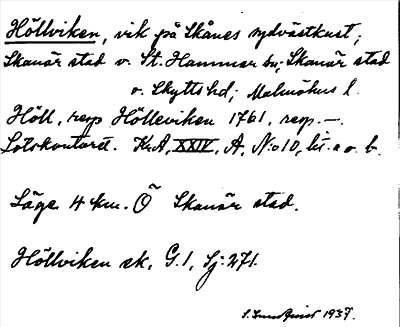 Höllviken, vik på Skånes sydvästkust;
Skanör stad o. St. Hammar sn; Skanör stad
o. Skytts hd; Malmöhus l.
Höll, resp Hölleviken 1761, resp. —.
Lotskontoret. KrA, XXIV, A, N:o 10, lit. a o. b.
Läge 4 km. Ö Skanör stad.
Höllviken ek. G.1, Sj:271.
1937.